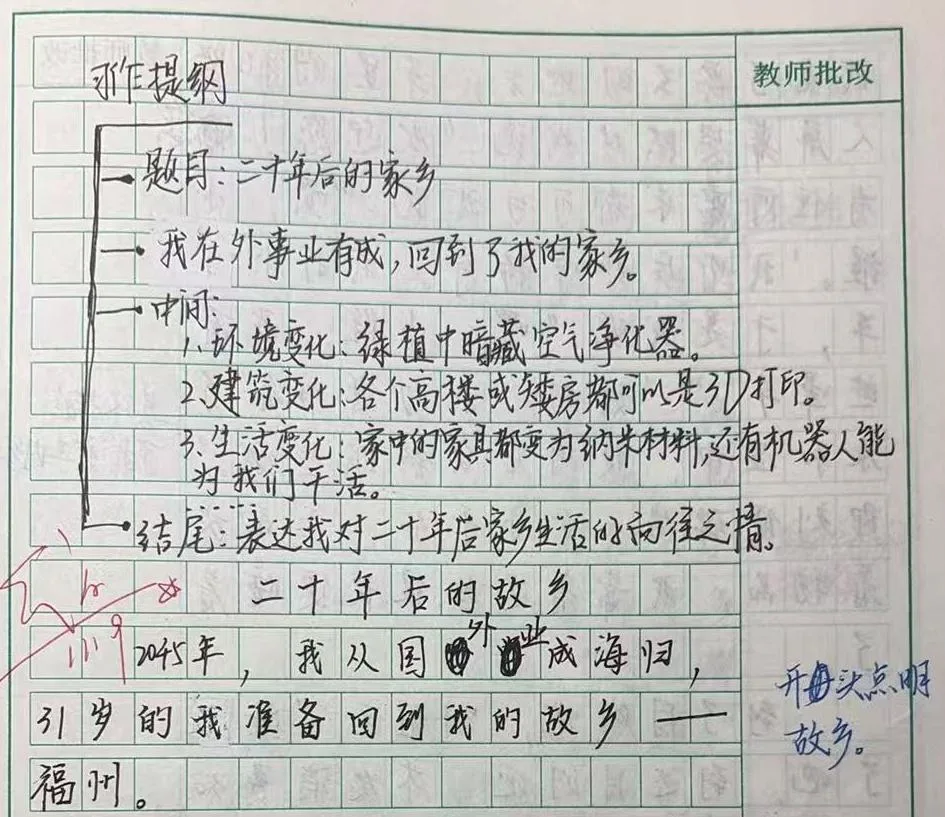 习作提纲
教师批改
题目:二十年后的家乡
我在外事业有成,回到了我的家乡。
中间:
1.环境变化:绿植中暗藏空气净化器。
2.建筑变化:各个高楼或矮房都可以是3D打印。
3.生活变化:家中的家具都变为纳米材料,还有机器人能
为我们干活。
结尾:表达我对二十年后家乡生活的向往之情。
二十年后的故乡
2045年,我从国外业成海归,
31岁的我准备回到我的故乡——
福州。
开头点明
故乡。